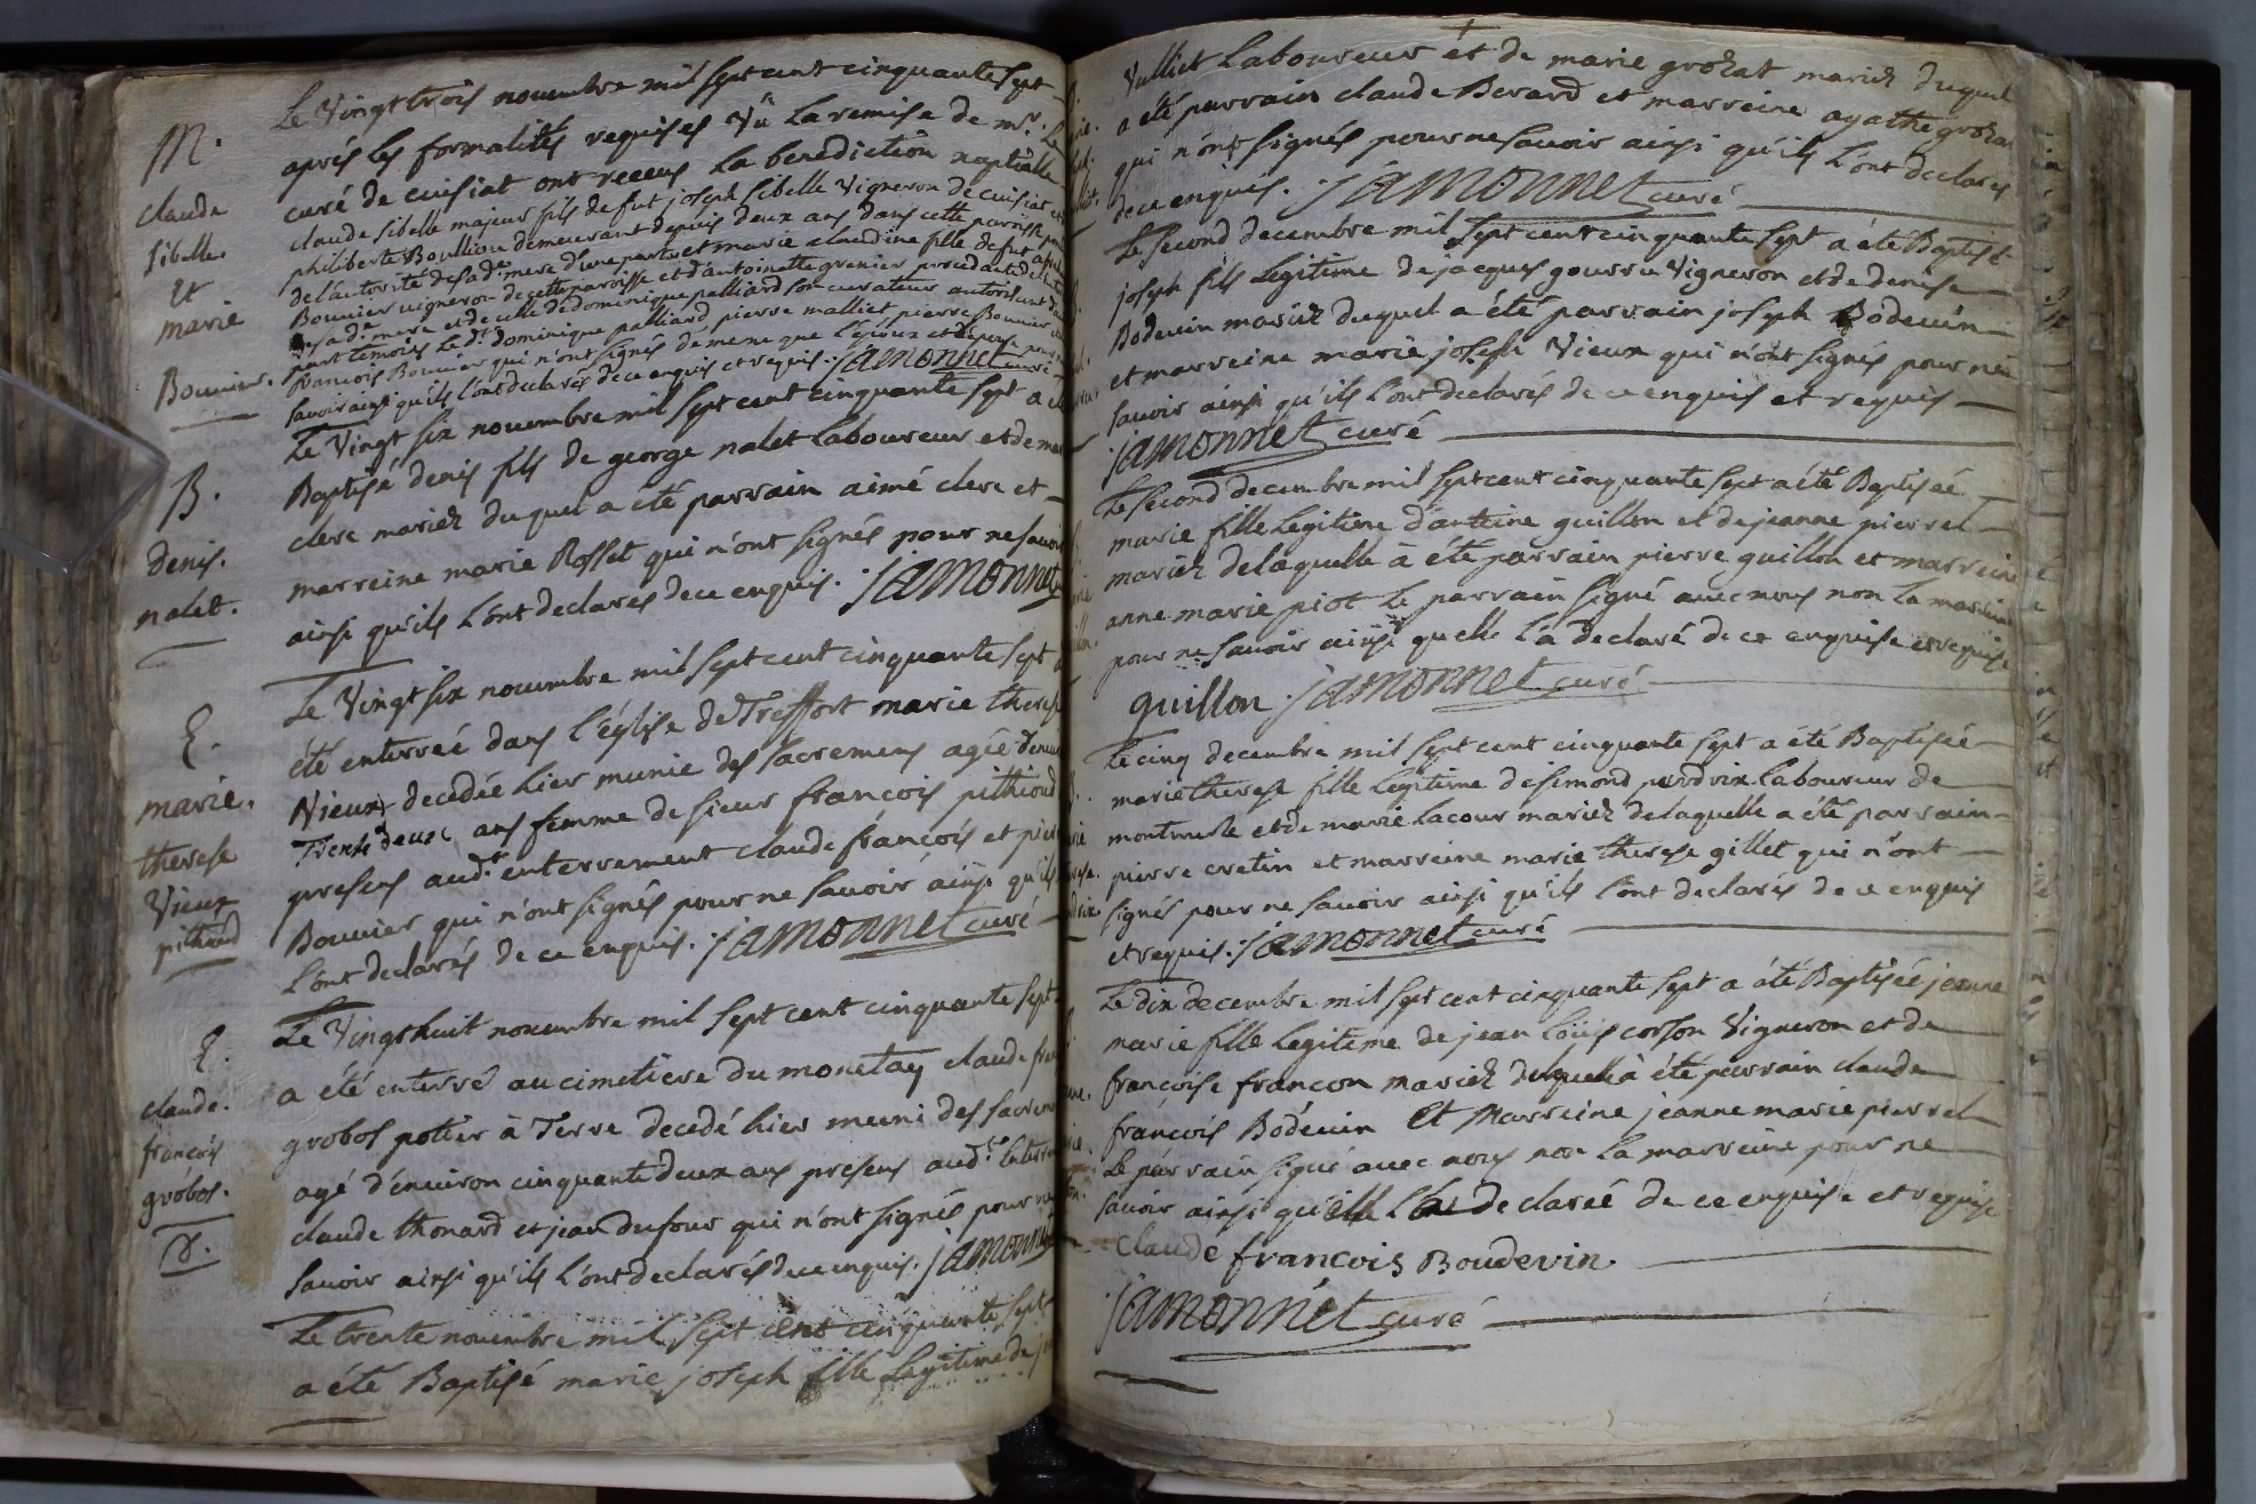 M.
claude
sibelle.
et
marie
Bouuier.
Le Vingt trois nouembre mil sept cent cinquante sept
aprés les formalités requises Vû la remise de mr. Le
curé de cuisiat ont receus la benediction nuptialle
claude sibelle majeur fils de fut joseph sibelle Vigneron de cuisiat et
philiberte Boullion demeurant depuis deux ans dans cette paroisse
de l'autorité de sa de. mere d'une part et marie claudine fille de fut
Bouuier uigneron de cette paroisse et d'antoinette grenier procedante de
de sa de. mere et de celle de dominique palliard son curateur autorisant
part temoins le dt. dominique palliard pierre malliet pierre Bouuier
francois Bouuier qui n'ont signés de meme que l'époux et l'épouse pour
sauoir ainsi qu'ils l'ont declarés de ce enquis et requis. jamonnet curé
B.
denis.
nalet.
Le Vingt six nouembre mil sept cent cinquante sept a été
Baptisé denis fils de george nalet laboureur et de
clerc mariez duquel a été parrain aimé clerc et
marreine marie Rosset qui n'ont signés pour ne sauoir
ainsi qu'ils l'ont declarés de ce enquis. jamonnet
E.
marie.
therese
Vieux
pithioud
Le Vingt six nouembre mil sept cent cinquante sept a
été enterreé dans l'église de Treffort marie therese
Vieux decedée hier munie des sacremens agée d'enuiron
Trente deux ans femme de sieur francois pithioud
presens audt. enterrement claude francois et pierre
Bouuier qui n'ont signés pour ne sauoir ainsi qu'ils
l'ont declarés de ce enquis. jamonnet curé
E.
claude.
francois
grobos.
Le Vingt huit nouembre mil sept cent cinquante sept
a été enterré au cimetiere du monetay claude
grobos potier à Terre decedé hier muni des sacremens
agé d'enuiron cinquante deux ans presens audt. enterrement
claude thonard et jean dufour qui n'ont signés pour ne
sauoir ainsi qu'ils l'ont declarés de ce enquis. jamonnet
Le trente nouembre mil sept cent cinquante sept
a été Baptisé marie joseph fille legitime de
Vulliet laboureur et de marie grozat mariez duquel
a été parrain claude Berard et marreine agathe grozat
qui n'ont signés pour ne sauoir ainsi qu'ils l'ont declarés
de ce enquis. jamonnet curé
Le second decembre mil sept cent cinquante sept a été Baptisé
joseph fils legitime de jacques gourru Vigneron et de denise
Bodeuin mariez duquel a été parrain joseph Bodeuin
et marreine marie joseph Vieux qui n'ont signés pour ne
sauoir ainsi qu'ils l'ont declarés de ce enquis et requis
jamonnet curé
Le second decembre mil sept cent cinquante sept a été Baptisée
marie fille legitime d'antoine guillon et de jeanne pierrel
mariez de laquelle a été parrain pierre guillon et marreine
anne marie piot le parrain signé auec nous non la marreine
pour ne sauoir ainsi quelle l'a declaré de ce enquise et requise
guillon jamonnet curé
Le cinq decembre mil sept cent cinquante sept a été Baptisée
marie therese fille legitime de simond perdrix laboureur de
montmerle et de marie lacour mariez de laquelle a été parrain
pierre cretin et marreine marie therese gillet qui n'ont
signés pour ne sauoir ainsi qu'ils l'ont declarés de ce enquis
et requis. jamonnet curé
Le dix decembre mil sept cent cinquante sept a été Baptisée jeanne
marie fille legitime de jean loüis corson Vigneron et de
francoise francon mariez delaquelle à été parrain claude
francois Bodeuin Et Marreine jeanne marie pierrel
Le parrain signé auec nous non la marreine pour ne
sauoir ainsi qu'elle l'a declareé de ce enquise et requise
Claude francois Boudevin.
jamonnet curé